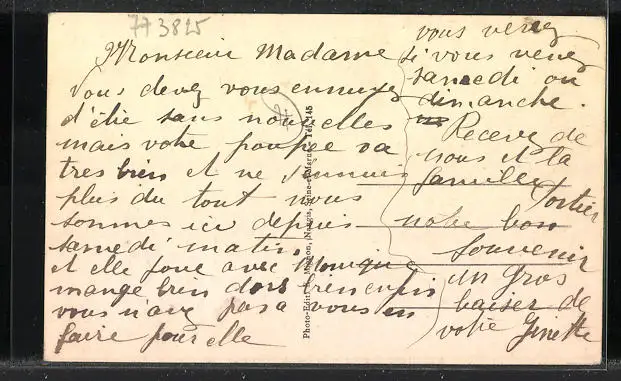 773825
Monsieur Madame
Vous devez vous ennuyez
d'être sans nouvelles
mais votre poupée va
tres bien et ne s'ennuis
plus du tout nous
sommes ici depuis
samedi matin
et elle joue avec Monique
mange bien dors tres enfin
vous n'avez pas a vous en
faire pour elle
vous verrez
si vous venez
samedi ou
dimanche.
Recevez de
nous et la
famille
Tortier
notre bon
souvenir
un gros
baiser de
votre Ginette
Photo-Edit. Mignon, Nangis, Seine-et-Marne. Tél. 145